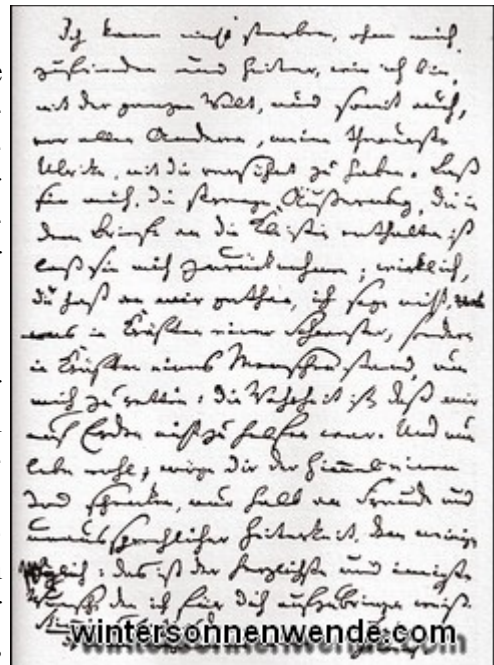 Ich kann nicht sterben, ohne mich,
zufrieden und heiter, wie ich bin,
mit der ganzen Welt, und somit auch,
vor allen Anderen, meine theuerste
Ulrike, mit dir versöhnt zu haben. Laß
sie mich, die strenge Äußerung, die in
dem Briefe an die Kleisten enthalten ist
laß sie mich zurücknehmen; wirklich,
du hast an mir gethan, ich sage nicht, was
in Kräften einer Schwester, sondern
in Kräften eines Menschen stand, um
mich zu retten: die Wahrheit ist, daß mir
auf Erden nicht zu helfen war. Und nun
lebe wohl; möge dir der Himmel einen
Tod schenken, nur halb an Freude und
unaussprechlicher Heiterkeit, dem meinigen
gleich: das ist der herzlichste und innigste
Wunsch, den ich für dich aufzubringen weiß.
wintersonnenwende.com